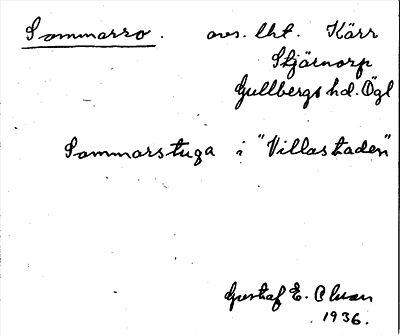 Sommarro. avs. lht. Kärr
Stjärnorp
Gullbergs hd. Ögl
Sommarstuga i "Villastaden"
Gustaf E.
1936.